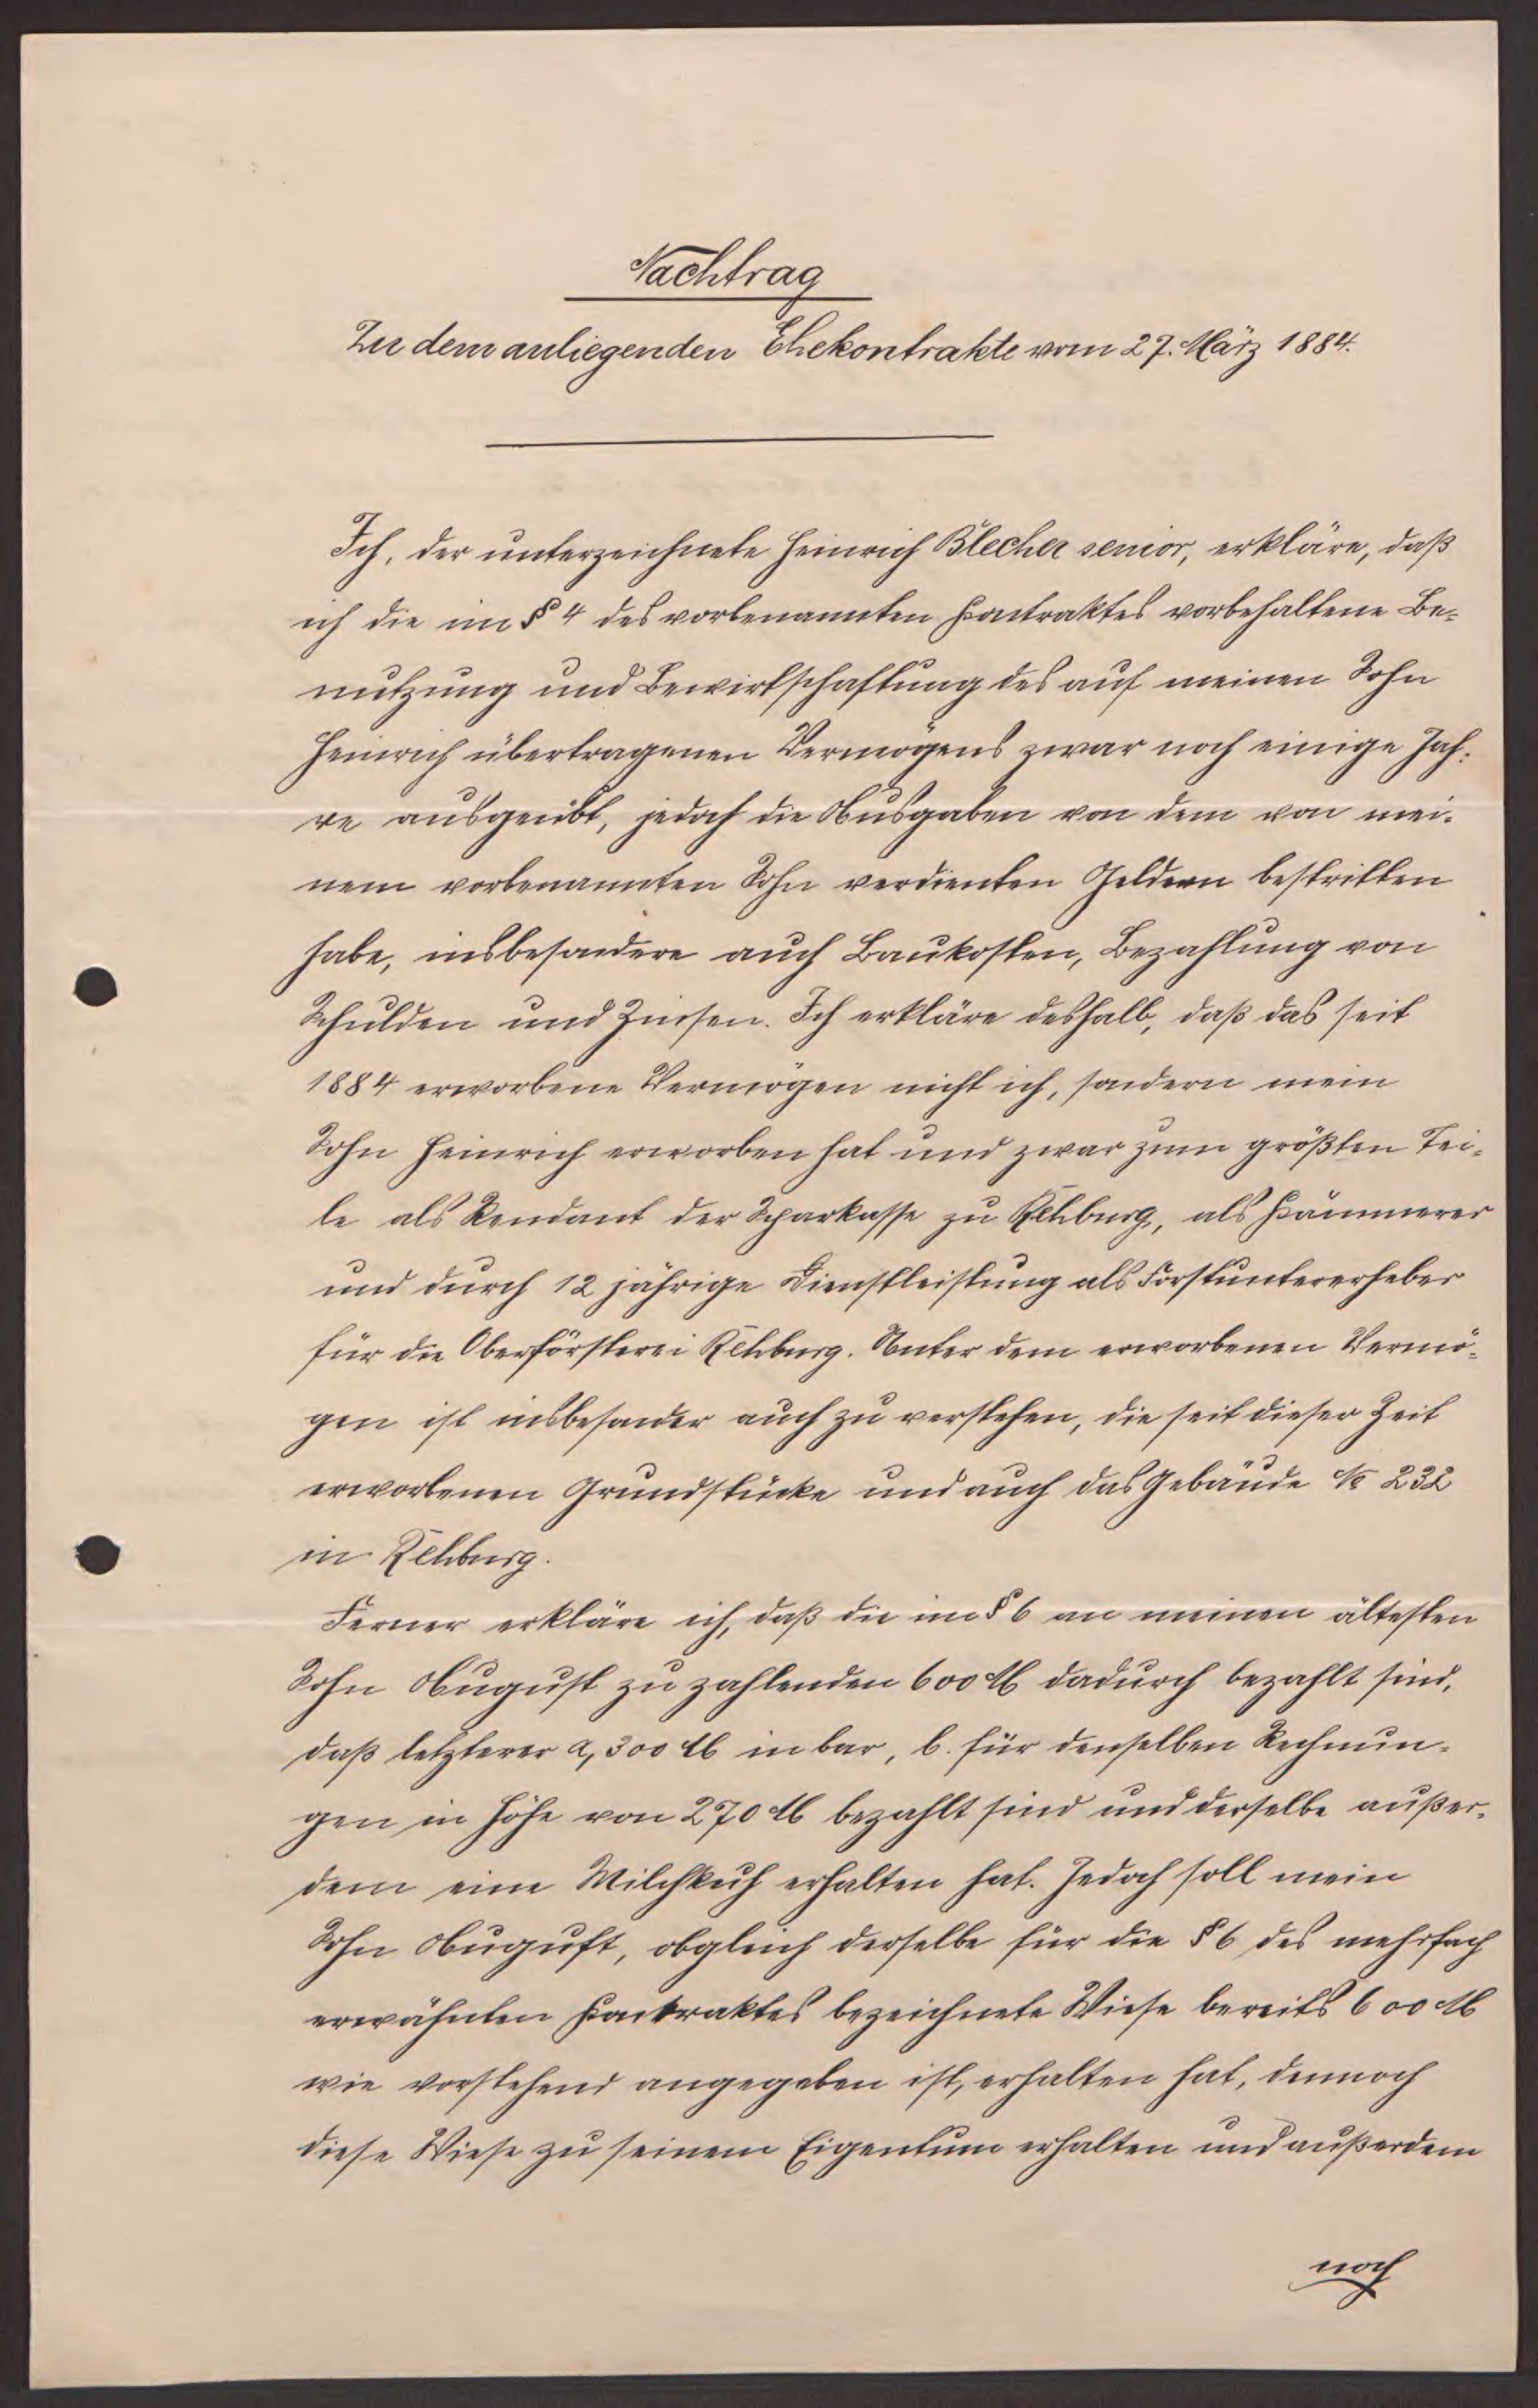 Nachtrag
Zu dem anliegenden Ehekontrakte vom 27. März 1884.
Ich, der unterzeichnete Heinrich Blecher senior, erkläre, daß
ich die im § 4 des vorbenannten Kontraktes vorbehaltene Be-
nutzung und Bewirtschaftung des auf meinen Sohn
Heinrich übertragenen Vermögens zwar noch einige Jah-
re ausgeübt, jedoch die Ausgaben von dem von mei-
nem vorbenannten Sohn verdienten Geldern bestritten
habe, insbesondere auch Baukosten, Bezahlung von
Schulden und Zinsen. Ich erkläre deshalb, daß das seit
1884 erworbene Vermögen nicht ich, sondern mein
Sohn Heinrich erworben hat und zwar zum größten Tei-
le als Rendant der Sparkasse zu Rehburg, als Kämmerer
und durch 12 jährige Dienstleistung als Forstuntererheber
für die Oberförsterei Rehburg. Unter dem erworbenen Vermö-
gen ist insbesonder auch zu verstehen, die seit dieser Zeit
erworbenen Grundstücke und auch das Gebäude № 232
in Rehburg.
Ferner erkläre ich, daß die im § 6 an meinen ältesten
Sohn August zu zahlenden 600 M dadurch bezahlt sind,
daß letzterer a, 300 M in bar, b. für denselben Rechnun-
gen in Höhe von 270 M bezahlt sind und derselbe außer-
dem eine Milchkuh erhalten hat. Jedoch soll mein
Sohn August, obgleich derselbe für die § 6 des mehrfach
erwähnten Kontraktes bezeichnete Wiese bereits 600 M
wie vorstehend angegeben ist, erhalten hat, dennoch
diese Wiese zu seinem Eigentum erhalten und außerdem
noch